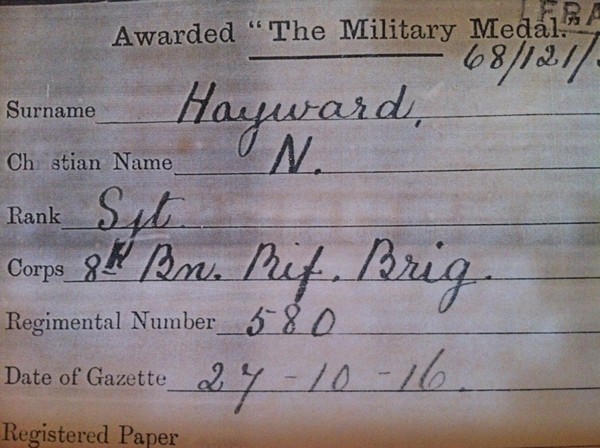 Awarded "The Military Medal."
68/121/
Surname Hayward,
Ch stian Name N.
Rank Sjt.
Corps 8th Bn. Rif. Brig.
Regimental Number 580
Date of Gazette 27-10-16.
Registered Paper